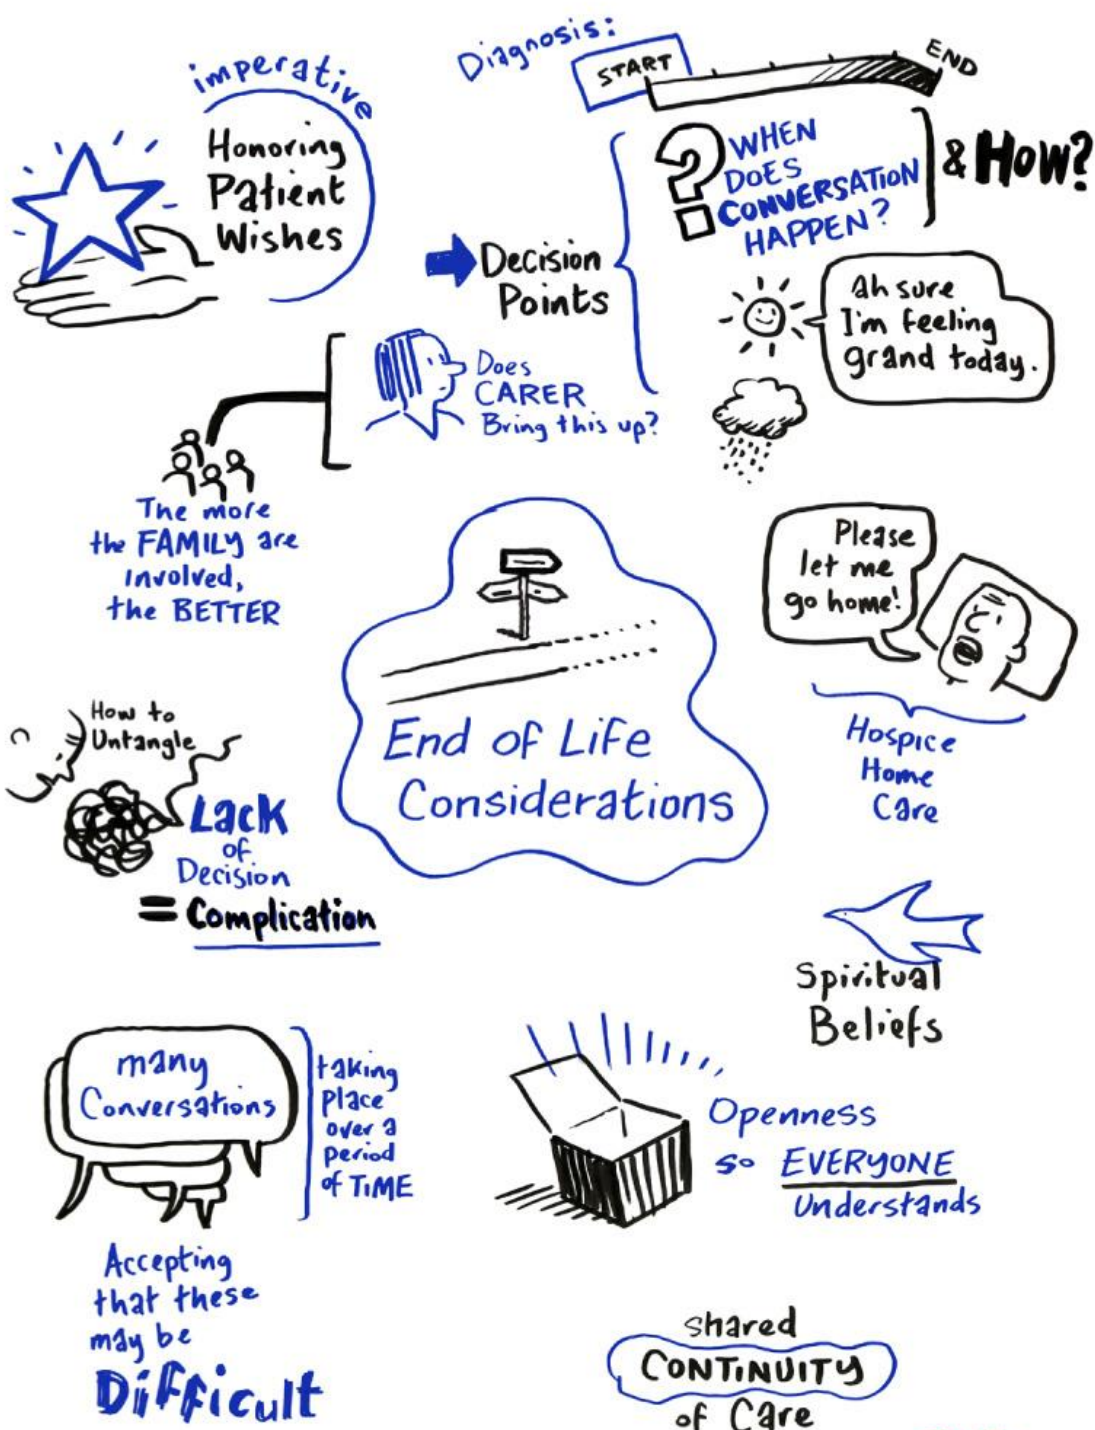 imperative
Honoring
Patient
Wishes
Diagnosis:
START
END
WHEN
DOES
CONVERSATION
HAPPEN?
& HOW?
Decision
Points
Ah sure
I'm feeling
grand today.
Does
CARER
Bring this up?
The more
the FAMILY are
involved,
the BETTER
Please
let me
go home!
Hospice
Home
Care
End of Life
Considerations
How to
Untangle
Lack
of
Decision
= Complication
Spiritual
Beliefs
many
Conversations
taking
Place
over a
period
of TIME
Accepting
that these
may be
Difficult
Openness
so EVERYONE
Understands
shared
CONTINUITY
of Care